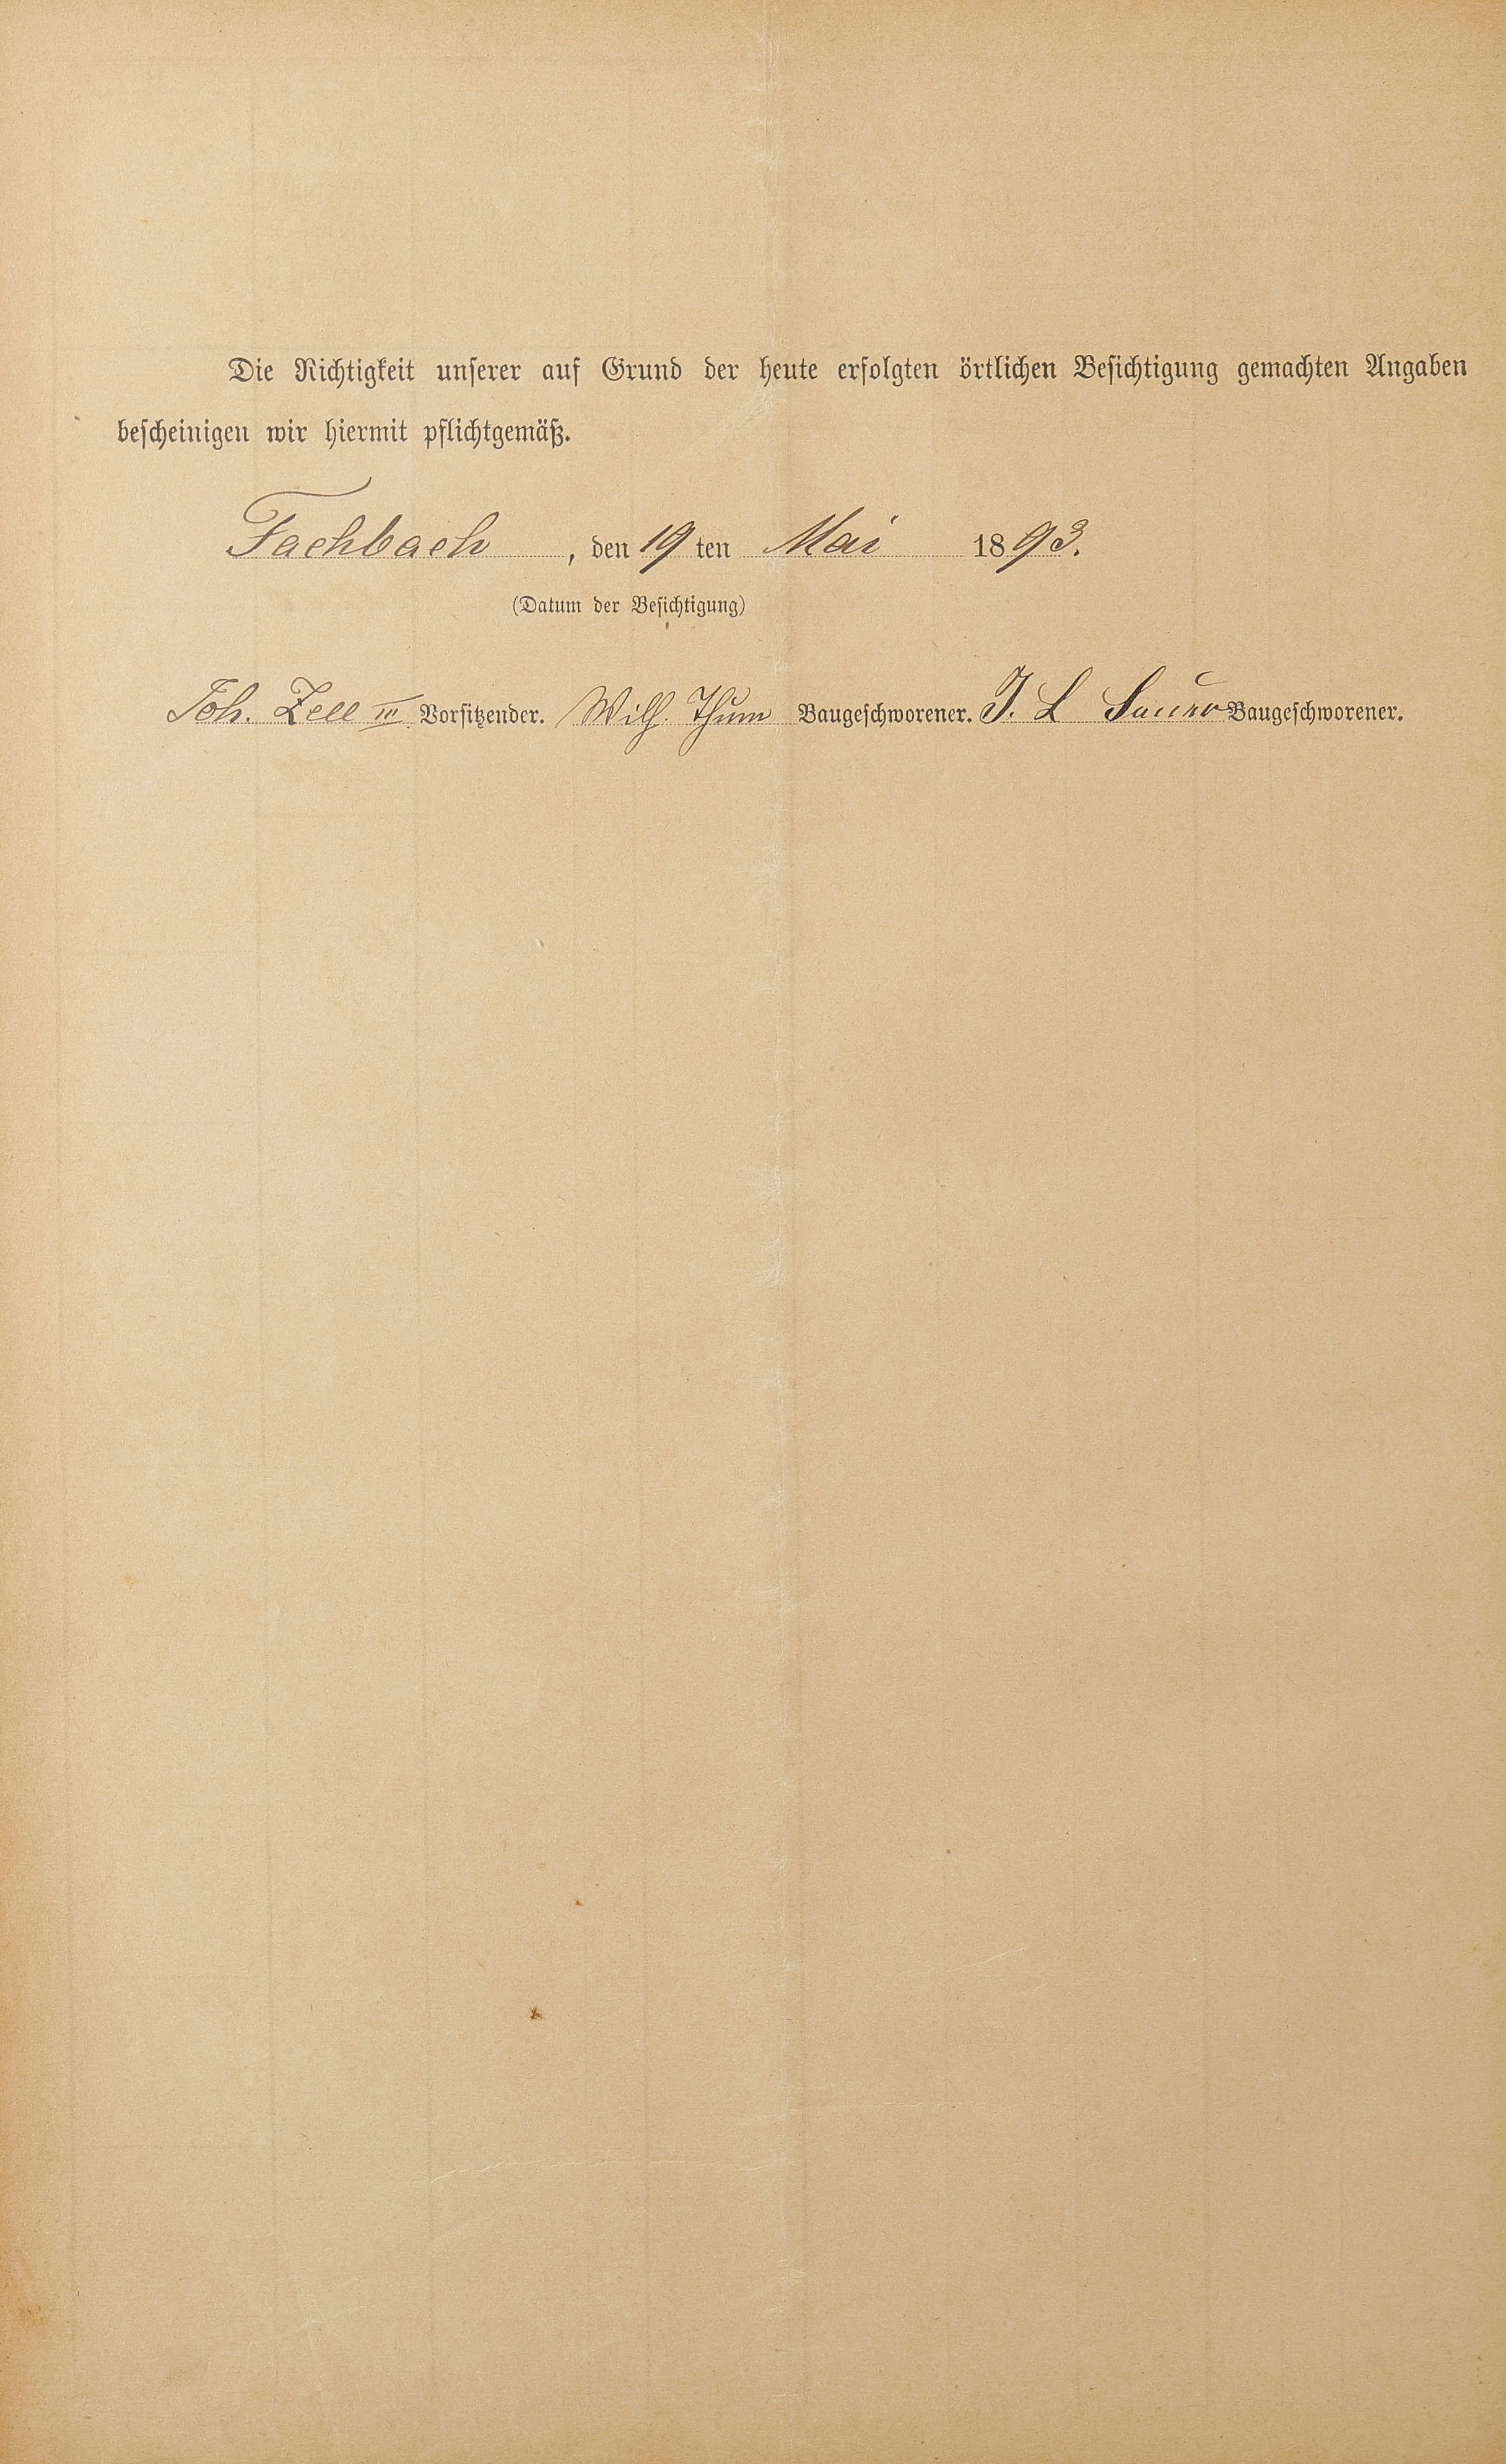 Die Richtigkeit unserer auf Grund der heute erfolgten örtlichen Besichtigung gemachten Angaben
bescheinigen wir hiermit pflichtgemäß.
Fachbach, den 19 ten Mai 1893.
(Datum der Besichtigung)
Joh. Zell III Vorsitzender. Wilh. Thum Baugeschworener. J. L Baugeschworener.